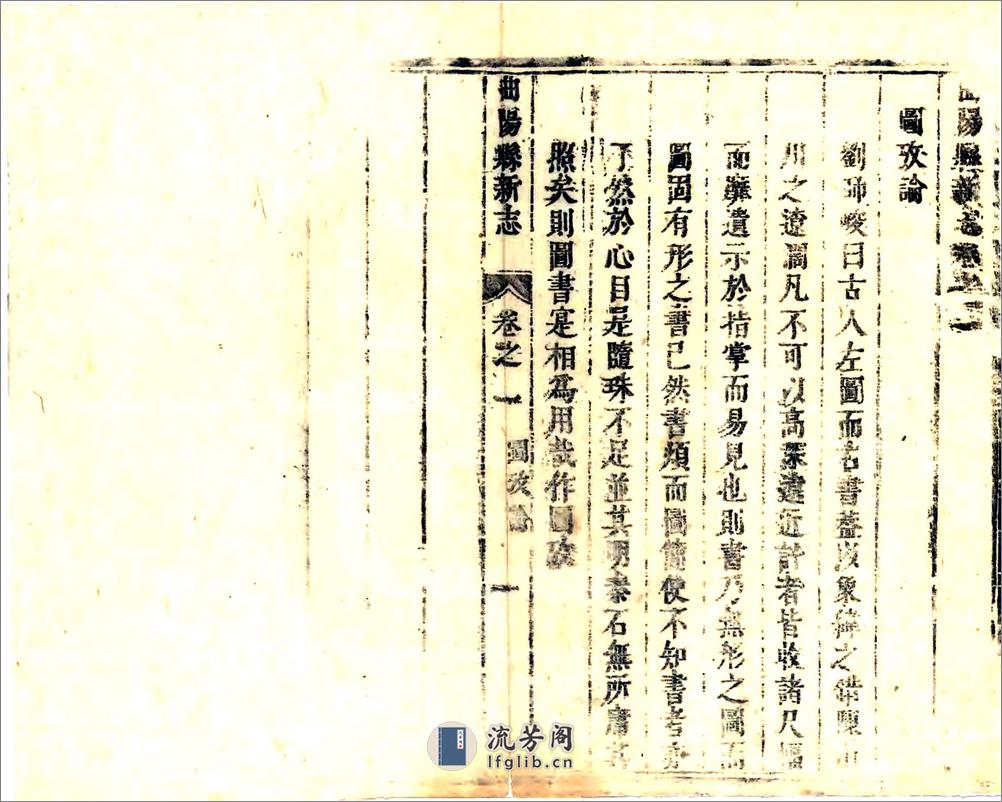 曲陽縣新志卷之二
圖攷論
劉師峻曰古人左圖而右書蓋以象緯之錯陳山
川之遼濶凡不可以高深遠近計者皆收諸尺幅
而靡遺示於指掌而易見也則書乃無形之圖而
圖固有形之書已然書煩而圖簡使不知書者亦
了然於心目是隨珠不足並其明秦石無所庸其
照矣則圖書寔相爲用哉作圖攷
曲陽縣新志
卷之一
圖攷論
一
流芳阁
lfglib.cn